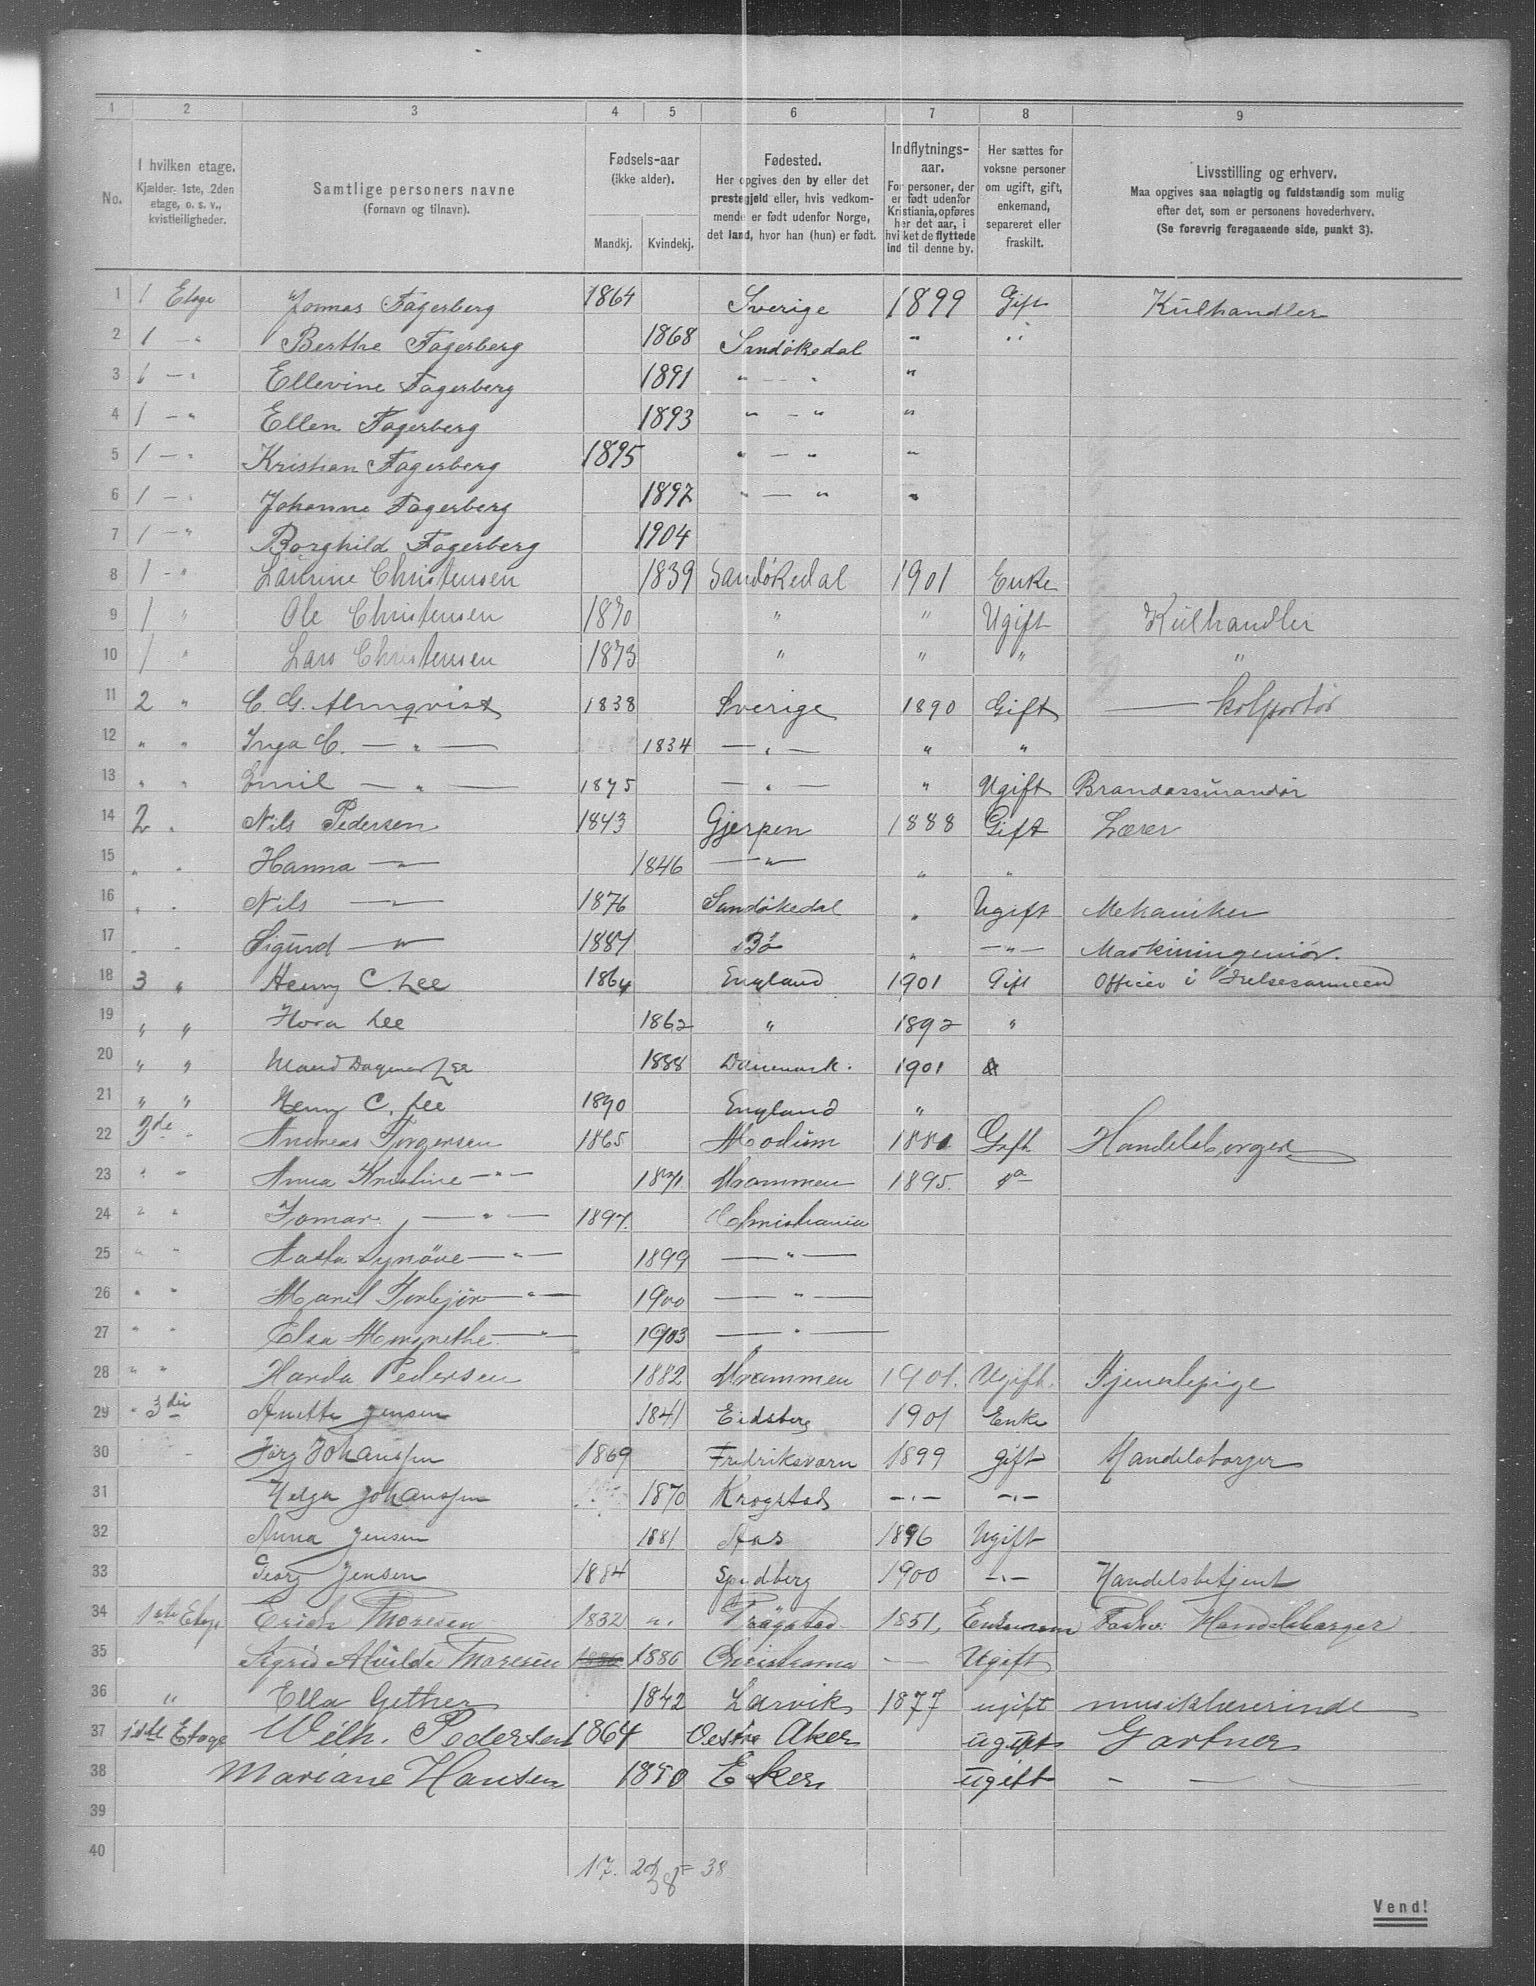 1 2 3 4 5 6 7 8 9
No.
I hvilken etage.
Kjælder. 1ste, 2den
etage, o. s. v.,
kvistleiligheder.
Samtlige personers navne
(Fornavn og tilnavn).
Fødsels-aar
(ikke alder).
Mandkj. Kvindekj.
Fødested.
Her opgives den by eller det
prestegjeld eller, hvis vedkom-
mende er født udenfor Norge,
det land, hvor han (hun) er født.
Indflytnings-
aar.
For personer, der
er født udenfor
Kristiania, opføres
her det aar, i
hvilket de flyttede
ind til denne by.
Her sættes for
voksne personer
om ugift, gift,
enkemand,
separeret eller
fraskilt.
Livsstilling og erhverv.
Maa opgives saa nøiagtig og fuldstændig som mulig
efter det, som er personens hovederhverv.
(Se forøvrig foregaaende side, punkt 3).
1 1 Etage Jonnas Fagerberg 1864 Sverige 1899 Gift Kulhandler
2 1 - " Berthe Fagerberg 1868 Sandøkedal " "
3 1 - " Ellevine Fagerberg 1891 " - " "
4 1 - " Ellen Fagerberg 1893 " - " "
5 1 - " Kristian Fagerberg 1895 " - " "
6 1 - " Johanne Fagerberg 1897 " - " "
7 1 - " Borghild Fagerberg 1904
8 1 - " Laurine Christensen 1839 Sandøkedal 1901 Enke
9 1 " Ole Christensen 1870 " " Ugift Kulhandler
10 1 " Lars Christensen 1873 " " " "
11 2 " C. G. Almqvist 1838 Sverige 1890 Gift — kolportør
12 " " Inga C. — " — 1834 — " — " "
13 " " Emil — " — 1875 — " — " Ugift Brandassurandør
14 2 " Nils Pedersen 1843 Gjerpen 1888 Gift Lærer
15 " " Hanna — " — 1846 — " — " "
16 " " Nils — " — 1876 Sandøkedal " Ugift Mekaniker
17 " " Sigurd — " — 1881 Bø " — " — Maskiningeniør.
18 3 " Henry C. Lee 1864 England 1901 Gift Officer i Frelsesarmeen
19 " " Flora Lee 1862 " 1892 "
20 " " Maud Dagmar Lee 1888 Danemark. 1901
21 " " Henry C. Lee 1890 England "
22 3de " Andreas Torgersen 1865 Modum 1881 Gift Handelsborger
23 " " Anna Kristine — " — 1871 Drammen 1895. "
24 " " — " — 1897. Christiania
25 " " Aasta Synöve — " — 1899 — " —
26 " " — " — 1900 — " —
27 " " Elsa Margrethe — " — 1903 — " —
28 " " Harda Pedersen 1882 Drammen 1901. Ugift. Tjenestepige
29 " 3die Anette Jensen 1841 Eidsberg 1901 Enke
30 Jørg Johanssen 1869 Fredriksværn 1899 gift Handelsborger
31 Helga Johanssen 1870 Krogstad — " — — " —
32 Anna Jensen 1881 Aas 1896 Ugift
33 Georg Jensen 1884 Spydberg 1900 — " — Handelsbetjent
34 1ste Etage Erich Thoresen 1832 " Trøgstad 1851, Enkemand Forhv. Handelsborger
35 Sigrid Alvilde Thoresen 1886 1886 Christiania — Ugift
36 " Ella Gether 1842 Larvik 1877 ugift musiklærerinde
37 1ste Etage Wilh. Pedersen 1864 Oestre Aker ugift Gartner
38 Mariane Hansen 1850 Eker ugift - - -
39
40
17. 21 = 38
38
Vend!